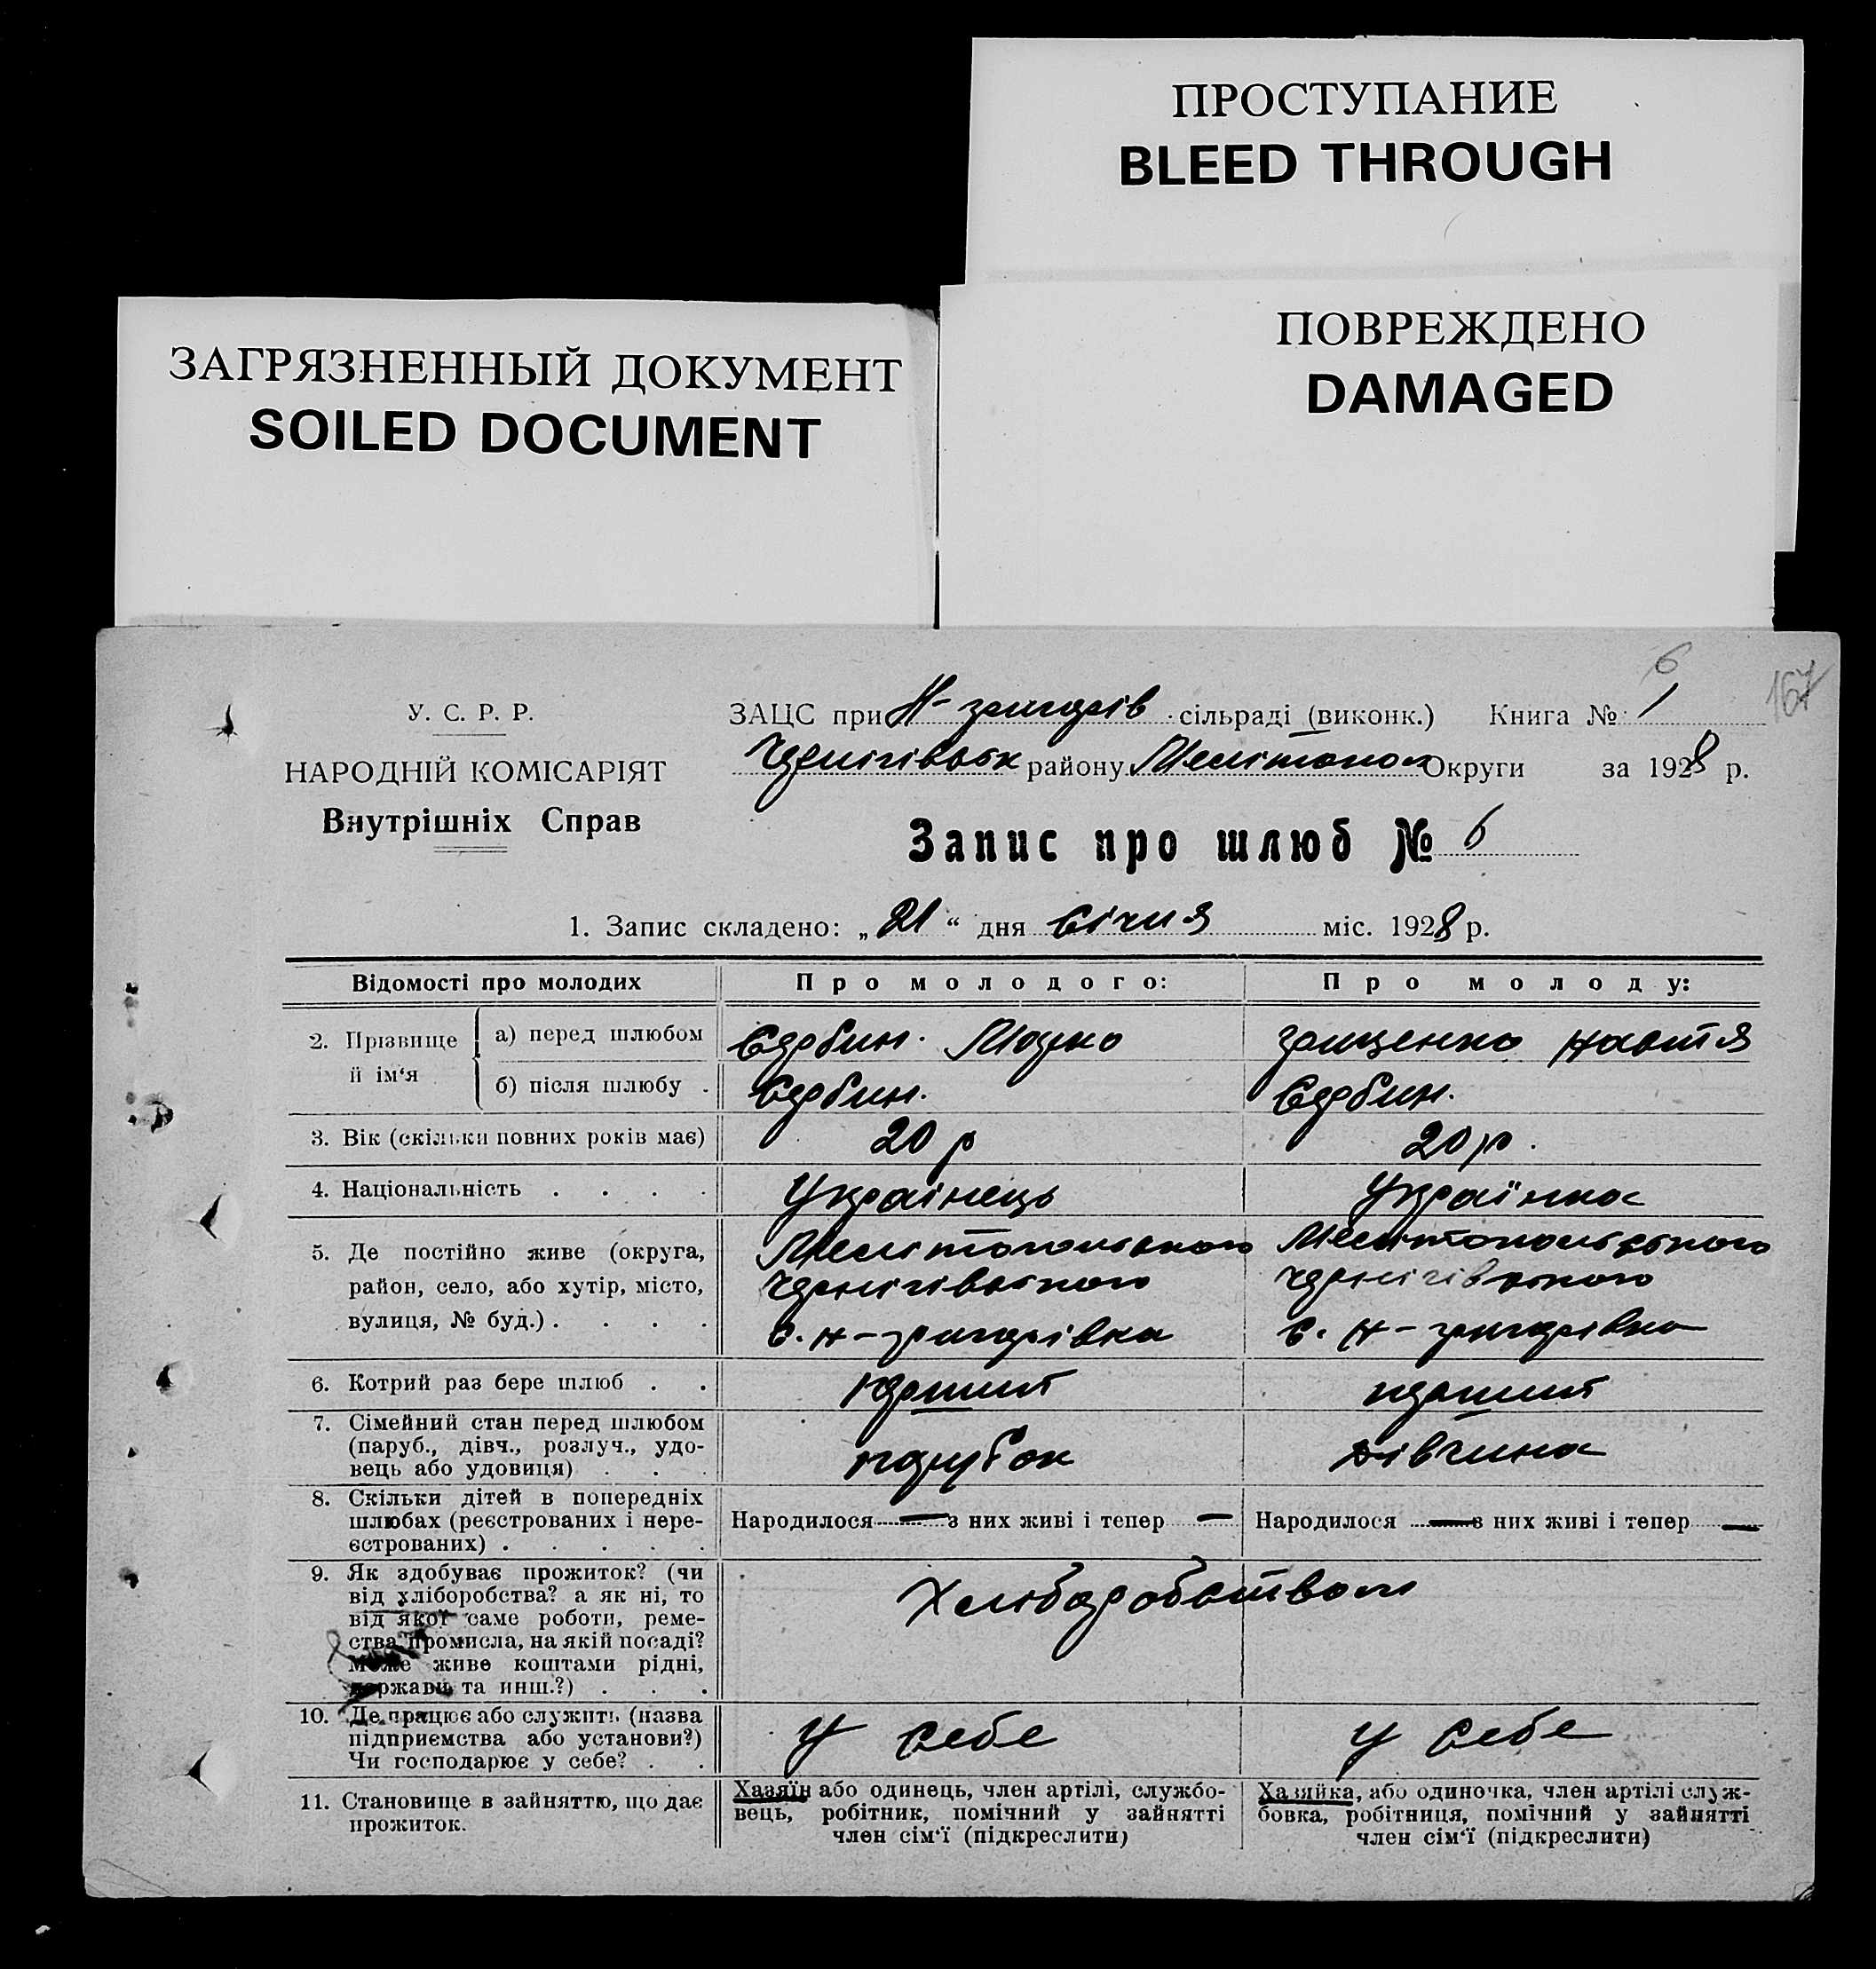 ПРОСТУПАНИЕ
BLEED THROUGH
ПОВРЕЖДЕНО
DAMAGED
ЗАГРЯЗНЕННЫЙ ДОКУМЕНТ
SOILED DOCUMENT
6
167
У. С. Р. Р.
НАРОДНІЙ КОМІСАРІЯТ
Внутрішніх Справ
ЗАЦС при Н-григорів сільраді (виконк.) Книга № 1
Чернігівськ району Мелітопол Округи за 1928 р.
Запис про шлюб № 6
1. Запис складено: „21“ дня Січня міс. 1928 р.
Відомості про молодих Про молодого: Про молоду:
2. Прізвище й ім‘я
а) перед шлюбом Сербин. Грищенко Настя
б) після шлюбу . Сербин. Сербин.
3. Вік (скільки повних років має) 20 р 20 р.
4. Національність . . . . Українець Українка
5. Де постійно живе (округа, Мелітопольського Мелітопольського
район, село, або хутір, місто, Чернігівського Чернігівського
вулиця, № буд.) . . . . с. Н-григорівка с. Н-григорівка
6. Котрий раз бере шлюб . . перший перший
7. Сімейний стан перед шлюбом
(паруб., дівч., розлуч., удо-
вець або удовиця) . . . парубок дівчина
8. Скільки дітей в попередніх
шлюбах (реєстрованих і нере- Народилося — з них живі і тепер — Народилося — з них живі і тепер —
єстрованих) . . . . .
9. Як здобуває прожиток? (чи
від хліборобства? а як ні, то Хліборобством
від якої саме роботи, реме-
ства промисла, на якій посаді?
Може живе коштами рідні,
держави та инш.?) . . .
10. Де працює або служить (назва
підприємства або установи?) У себе У себе
Чи господарює у себе? . .
11. Становище в зайняттю, що дає
прожиток.
Хазяїн або одинець, член артілі, службо-
вець, робітник, помічний у зайнятті
член сім‘ї (підкреслити)
Хазяйка, або одиночка, член артілі служ-
бовка, робітниця, помічний у зайнятті
член сім‘ї (підкреслити)